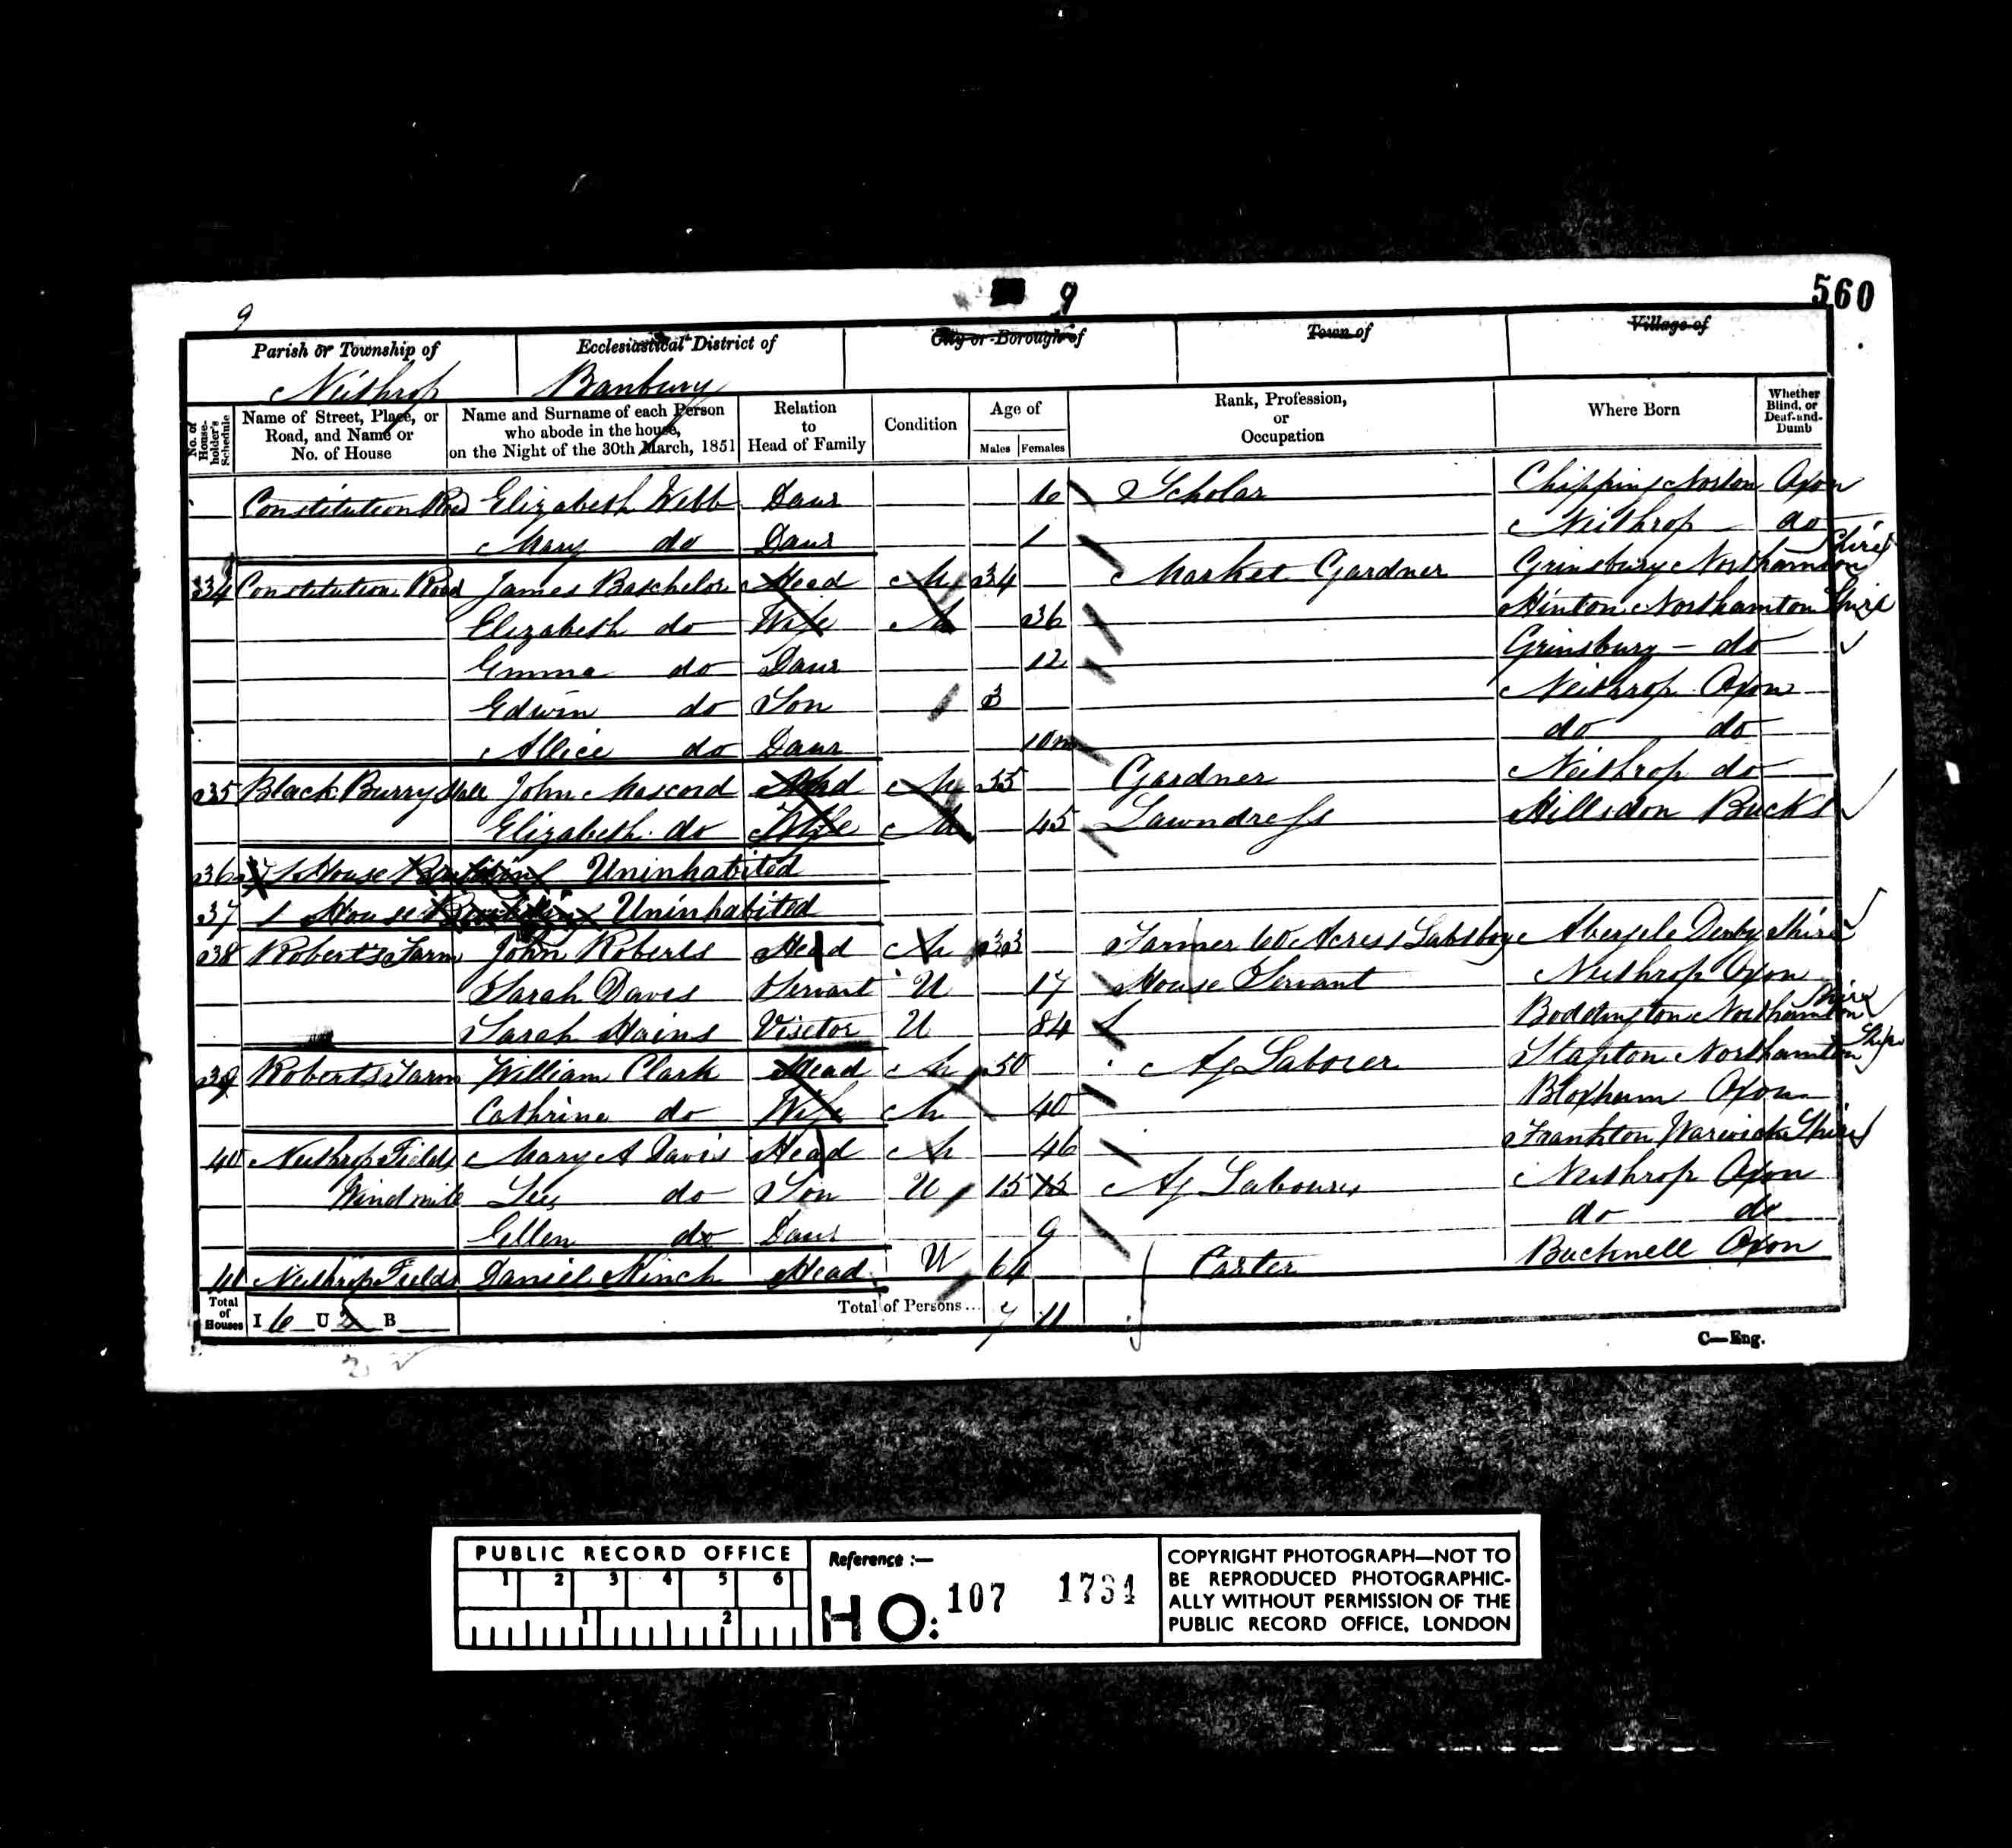 9
9
560
Parish or Township of Ecclesiastical District of City or Borough of Town of Village of
Neithrop Banbury
No. of House-holder's Schedule
Name of Street, Place, or Road, and Name or No. of House
Name and Surname of each Person who abode in the house, on the Night of the 30th March, 1851
Relation to Head of Family
Condition
Age of
Males Females
Rank, Profession, or Occupation
Where Born
Whether Blind, or Deaf-and-Dumb
Constitution Road Elizabeth Webb Daur 10 Scholar Chipping Norton Oxon
Mary do Daur 1 Neithrop do
34 Constitution Road James Batchelor Head M 34 Market Gardner Grimsbury Northamton Shire
Elizabeth do Wife M 36 Hinton Northamton Shire
Emma do Daur 12 Grimsbury - do
Edwin do Son 3 Neithrop Oxon
Allice do Daur 10m do do
35 Black Burry Hall John Mascord Head M 55 Gardner Neithrop do
Elizabeth do Wife M 45 Lawndress Hillsdon Bucks
36 1 House Building Uninhabited
37 1 House Building Uninhabited
38 Roberts Farm John Roberts Head M 33 Farmer 60 Acres 1 Lab boy Abergele Denby Shire
Sarah Daves Servant U 17 House Servant Neithrop Oxon
Sarah Hains Visetor U 84 Boddington Northamton Shire
39 Roberts Farm William Clark Head M 50 Ag Laborer Northamton Shire
Cathrine do Wife M 40 Bloxham Oxon
40 Neithrop Fields Mary A Davis Head M 46 Frankton Warwick Shire
Windmill do Son U 15 15 Ag Labourer Neithrop Oxon
Ellen do Daur 9 do do
41 Neithrop Fields Daniel Kinch Head U 64 Carter Bucknell Oxon
Total of Houses I 6 U 2 B Total of Persons... 7 11
C—Eng.
PUBLIC RECORD OFFICE
1 2 3 4 5 6
1 2
Reference :—
HO: 107 1734
COPYRIGHT PHOTOGRAPH—NOT TO
BE REPRODUCED PHOTOGRAPHIC-
ALLY WITHOUT PERMISSION OF THE
PUBLIC RECORD OFFICE, LONDON